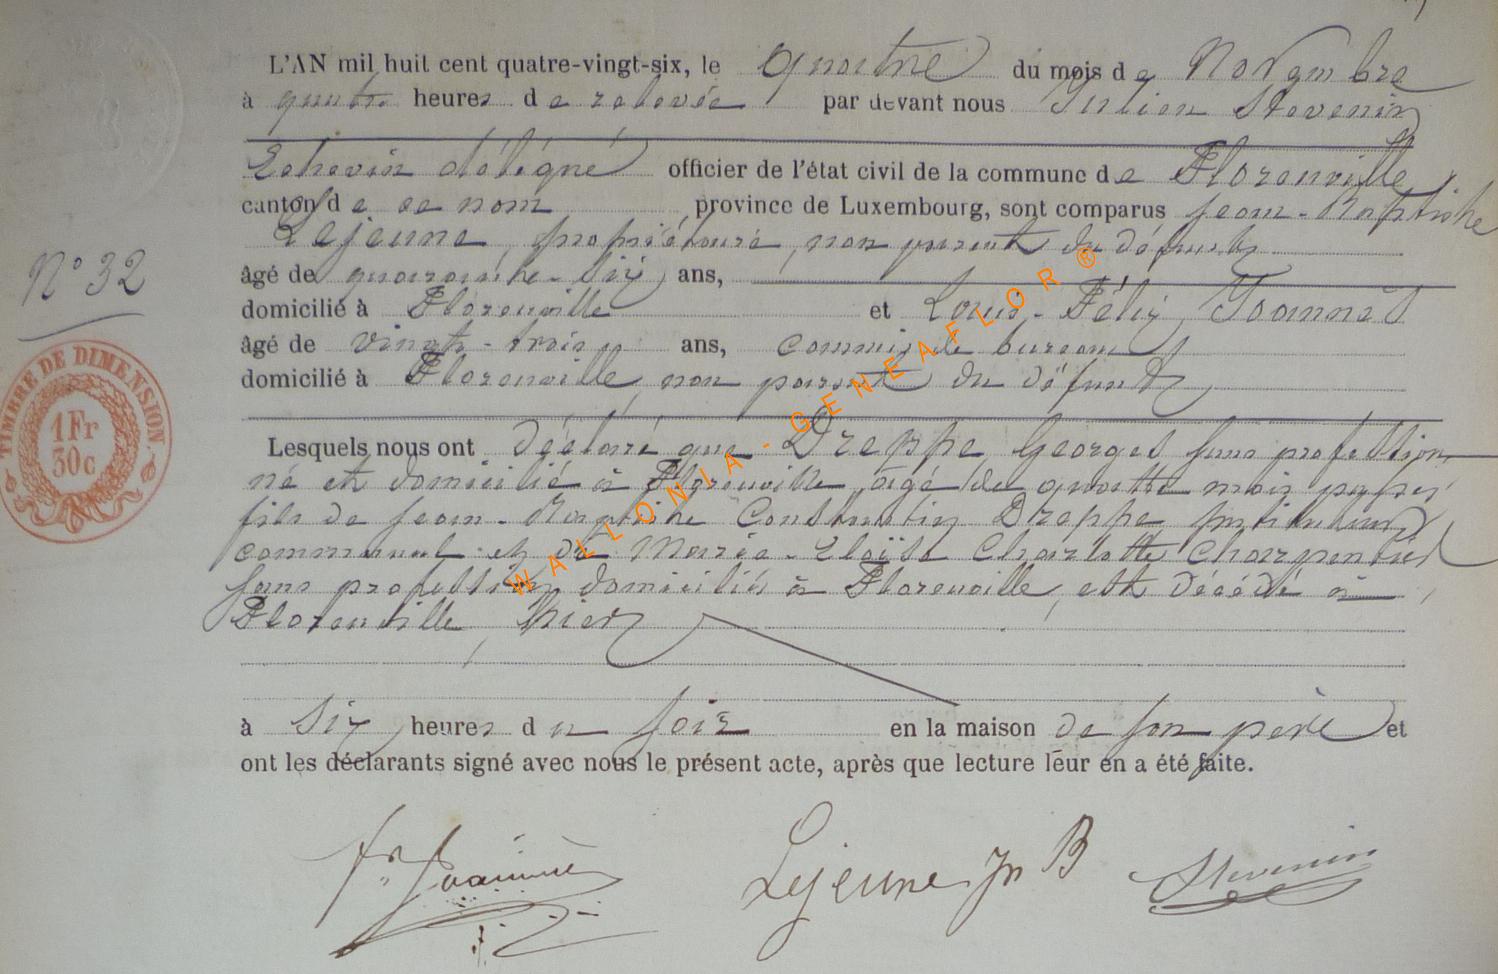 L'AN mil huit cent quatre-vingt-six, le quatre du mois de Novembre
à quatre heures de relevée par devant nous Julien Stevenin
Echevin délégué officier de l'état civil de la commune de Florenville
canton de ce nom province de Luxembourg, sont comparus Jean-Baptiste
Lejeune, propriétaire, non parent du défunt
N° 32
âgé de quarante-six ans,
domicilié à Florenville et Louis-Félix Joannes
âgé de vingt-trois ans, commis de bureau
domicilié à Florenville, non parent du défunt
TIMBRE DE DIMENSION
1Fr
30c
WALLONIA-GENEAFLOR ®
Lesquels nous ont déclaré que Dreppe Georges sans profession
né et domicilié à Florenville, âgé de quatre mois
fils de Jean-Baptiste Constantin Dreppe instituteur
communal et de Marie-Eloïse Charlotte Charpentier
sans profession domiciliés à Florenville, est décédé à
Florenville, hier
à six heures du soir en la maison de son père et
ont les déclarants signé avec nous le présent acte, après que lecture leur en a été faite.
Lejeune Jn B Stevenin